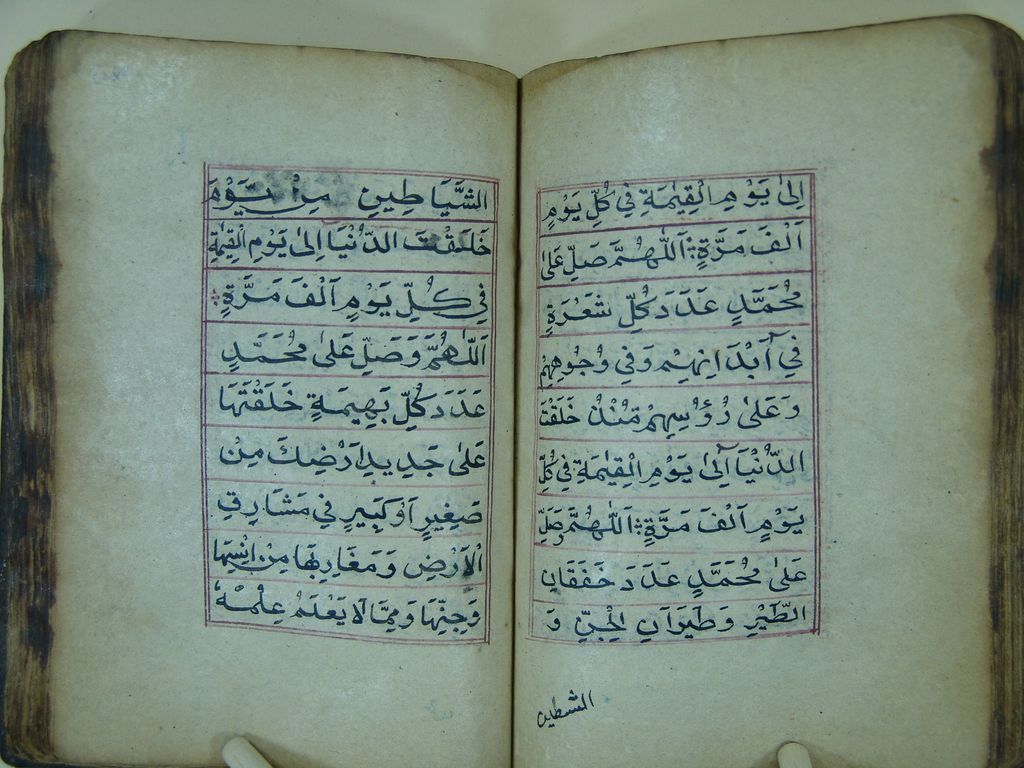 اِلىٰ يَوْمِ الْقِيٰمَةِ فِي كُلِّ يَوْمٍ
اَلْفَ مَرَّةٍ؞ اَللّٰهُمَّ صَلِّ عَلىٰ
مُحَمَّدٍ عَدَدَ كُلِّ شَعْرَةٍ
فِي اَبْدَانِهِمْ وَفِي وُجُوهِهِمْ
وَعَلىٰ رُؤُسِهِمْ مُنْذُ خَلَقْتَ
الدُّنْيَا اِلىٰ يَوْمِ الْقِيٰمَةِ فِي كُلِّ
يَوْمٍ اَلْفَ مَرَّةٍ؞ اَللّٰهُمَّ وَصَلِّ
عَلىٰ مُحَمَّدٍ عَدَدَ خَفَقَانِ
الطَّيْرِ وَطَيَرَانِ الْجِنِّ وَ
الشطين
الشَّيَاطِينِ مِنْ يَوْمَ
خَلَقْتَ الدُّنْيَا اِلىٰ يَوْمِ الْقِيٰمَةِ
فِي كُلِّ يَوْمٍ اَلْفَ مَرَّةٍ؞
اَللّٰهُمَّ وَصَلِّ عَلىٰ مُحَمَّدٍ
عَدَدَ كُلِّ بَهِيمَةٍ خَلَقْتَهَا
عَلىٰ جَدِيدِ اَرْضِكَ مِنْ
صَغِيرٍ اَوْ كَبِيرٍ فِي مَشَارِقِ
الْاَرْضِ وَمَغَارِبِهَا مِنْ اِنْسِهَا
وَجِنِّهَا وَمِمَّا لَا يَعْلَمُ عِلْمَهُ